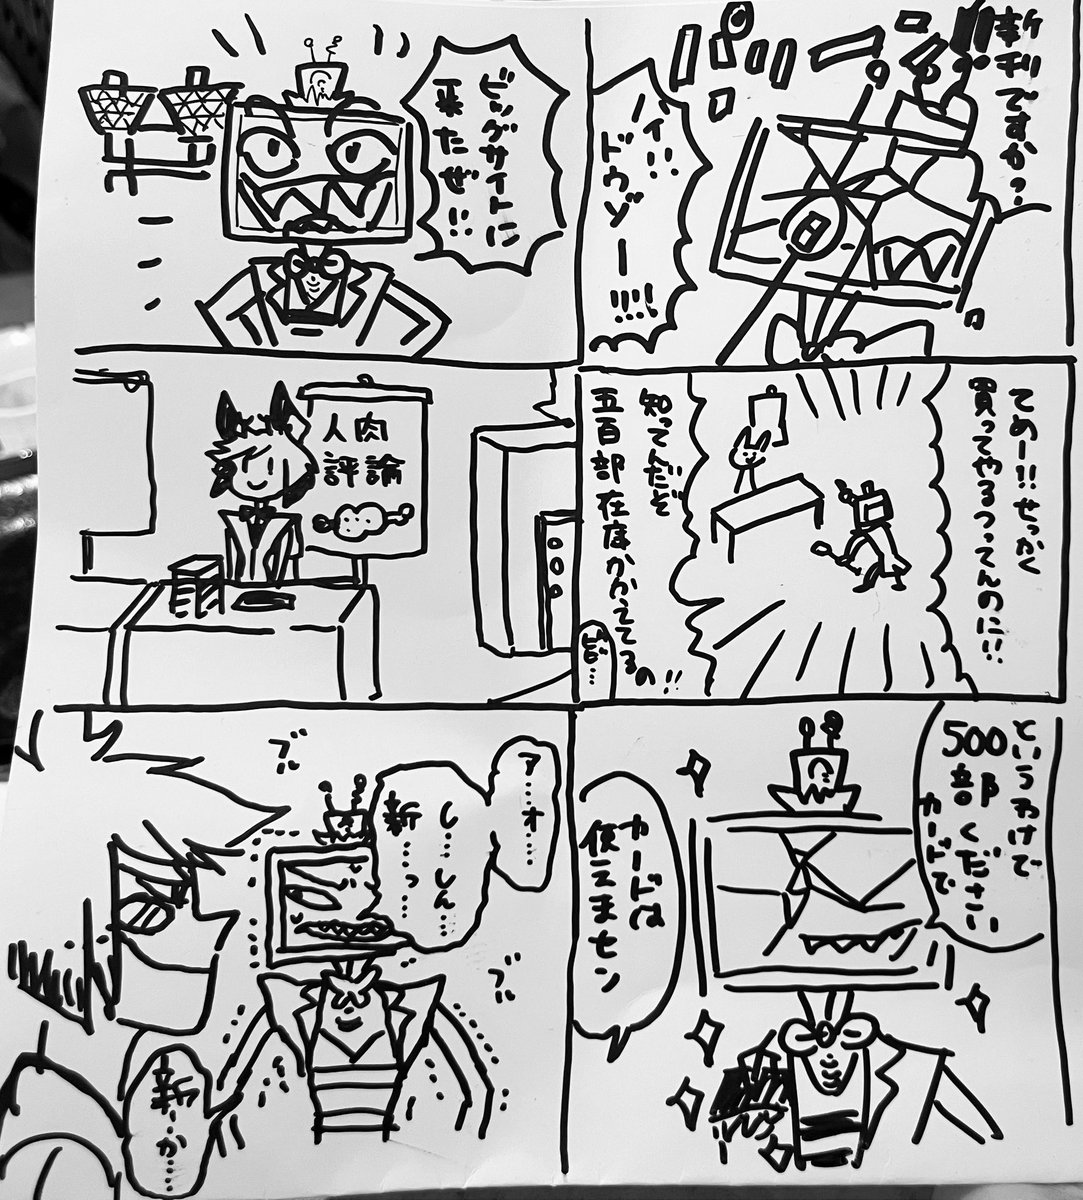 ビッグサイトに
来たぜ!!
人肉
評論
ア…オ…
し…しん…
新…っ…
ブル
ブル
新…か…
新刊ですかっ
ハイ!!
ドウゾー!!!!
てめー!!せっかく
買ってやるつってんのに!!
知ってんだぞ
五百部在庫かかえてるの!!
というわけで
500部ください
カードで
カードは
使エまセン